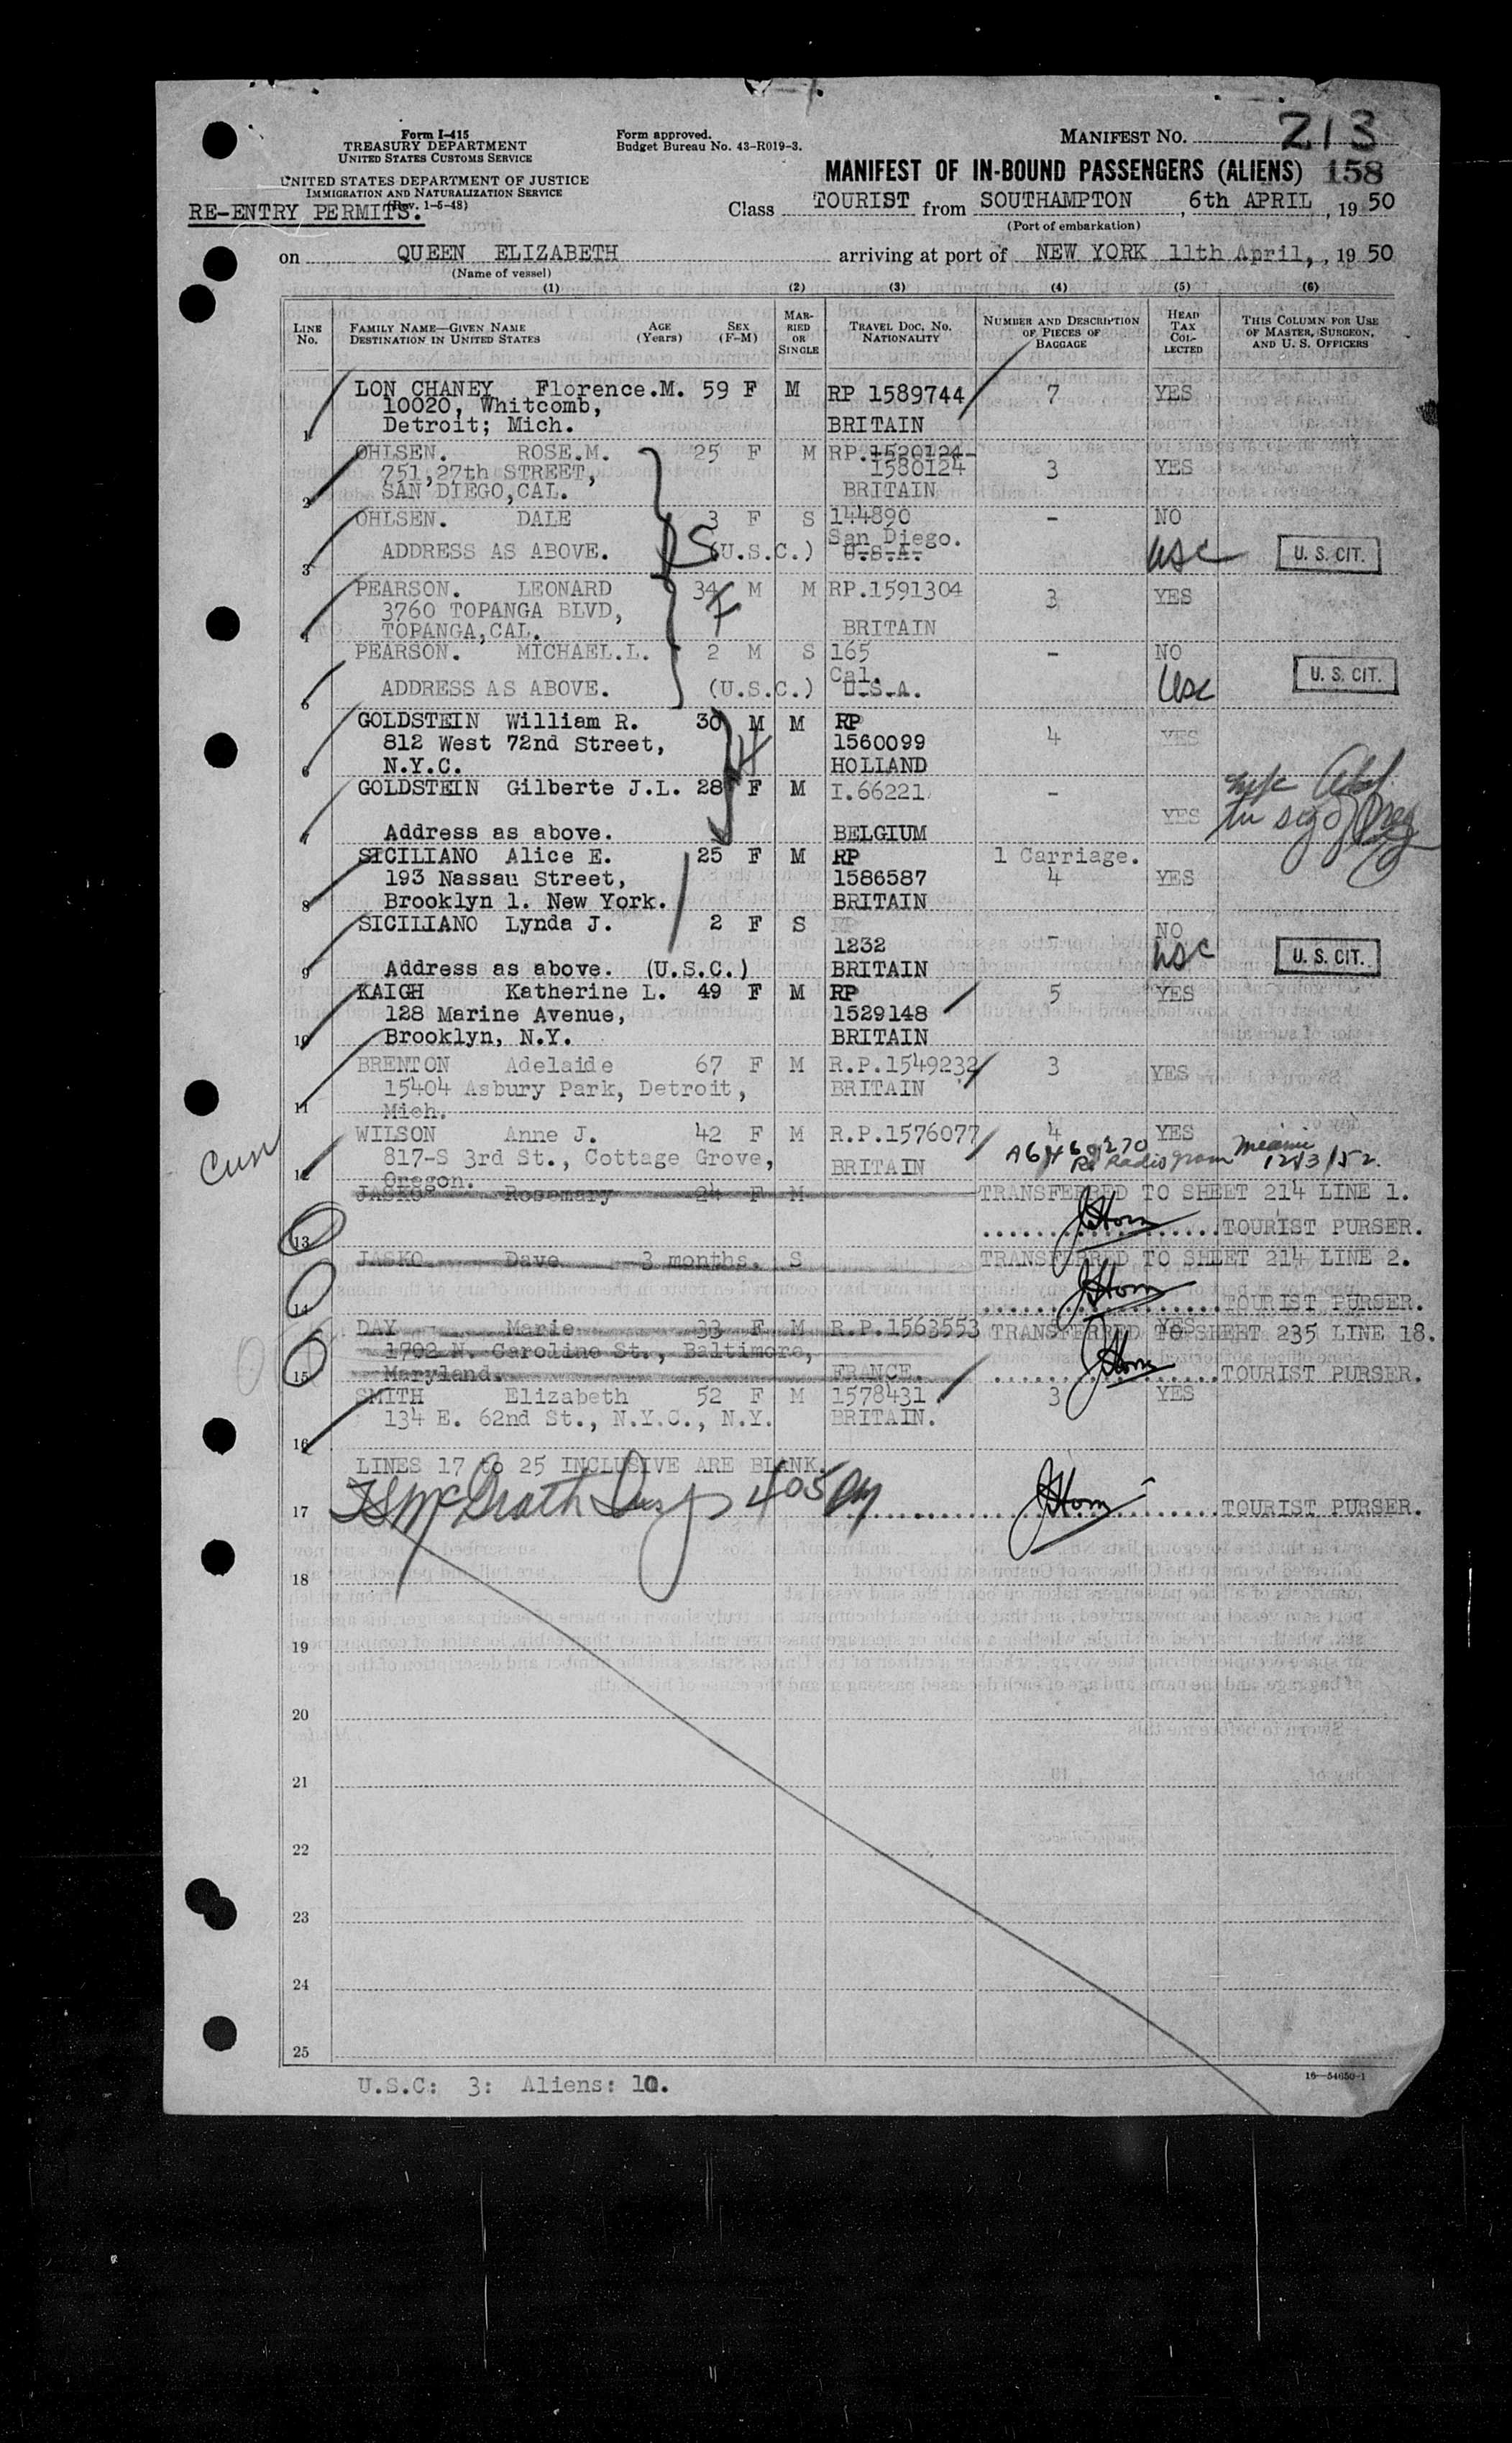 Form I-415
TREASURY DEPARTMENT
UNITED STATES CUSTOMS SERVICE
Form approved.
Budget Bureau No. 43-R019-3.
MANIFEST NO. 213
UNITED STATES DEPARTMENT OF JUSTICE
IMMIGRATION AND NATURALIZATION SERVICE
(Rev. 1-5-48)
RE-ENTRY PERMITS.
MANIFEST OF IN-BOUND PASSENGERS (ALIENS) 158
Class TOURIST from SOUTHAMPTON, 6th APRIL, 1950
(Port of embarkation)
on QUEEN ELIZABETH arriving at port of NEW YORK 11th April,, 1950
(Name of vessel)
(1) (2) (3) (4) (5) (6)
LINE No. FAMILY NAME—GIVEN NAME DESTINATION IN UNITED STATES AGE (Years) SEX (F-M) MARRIED OR SINGLE TRAVEL DOC. NO. NATIONALITY NUMBER AND DESCRIPTION OF PIECES OF BAGGAGE HEAD TAX COLLECTED THIS COLUMN FOR USE OF MASTER, SURGEON, AND U. S. OFFICERS
LON CHANEY Florence.M. 59 F M RP 1589744 7 YES
10020, Whitcomb,
1 Detroit; Mich. BRITAIN
OHLSEN. ROSE.M. 25 F M RP.1520124
751,27th STREET, 1580124 3 YES
2 SAN DIEGO,CAL. BRITAIN
OHLSEN. DALE 3 F S 144890 - NO
San Diego.
3 ADDRESS AS ABOVE. (U.S.C.) U.S.A. USC U. S. CIT.
PEARSON. LEONARD 34 M M RP.1591304 3 YES
3760 TOPANGA BLVD,
4 TOPANGA,CAL. BRITAIN
PEARSON. MICHAEL.L. 2 M S 165 - NO
Cal.
5 ADDRESS AS ABOVE. (U.S.C.) U.S.A. USC U. S. CIT.
GOLDSTEIN William R. 30 M M RP
812 West 72nd Street, 1560099 4 YES
6 N.Y.C. HOLLAND
GOLDSTEIN Gilberte J.L. 28 F M I.66221 -
YES
7 Address as above. BELGIUM
SICILIANO Alice E. 25 F M RP 1 Carriage.
193 Nassau Street, 1586587 4 YES
8 Brooklyn 1. New York. BRITAIN
SICILIANO Lynda J. 2 F S RP - NO
1232 USC U. S. CIT.
9 Address as above. (U.S.C.) BRITAIN
KAIGH Katherine L. 49 F M RP 5 YES
128 Marine Avenue, 1529148
10 Brooklyn, N.Y. BRITAIN
BRENTON Adelaide 67 F M R.P.1549232 3 YES
15404 Asbury Park, Detroit, BRITAIN
11 Mich.
WILSON Anne J. 42 F M R.P.1576077 4 YES
817-S 3rd St., Cottage Grove, BRITAIN Radiogram Miami
12 Oregon.
JASKO Rosemary 24 F M TRANSFERRED TO SHEET 214 LINE 1.
13 TOURIST PURSER.
JASKO Dave 3 months. S TRANSFERRED TO SHEET 214 LINE 2.
14 TOURIST PURSER.
DAY Marie 33 F M R.P.1563553 YES TRANSFERRED TO SHEET 235 LINE 18.
1702 N. Caroline St., Baltimore,
15 Maryland. FRANCE. TOURIST PURSER.
SMITH Elizabeth 52 F M 1578431 3 YES
134 E. 62nd St., N.Y.C., N.Y. BRITAIN.
16
LINES 17 to 25 INCLUSIVE ARE BLANK.
17 TOURIST PURSER.
18
19
20
21
22
23
24
25
U.S.C: 3: Aliens: 10.
16—54650-1